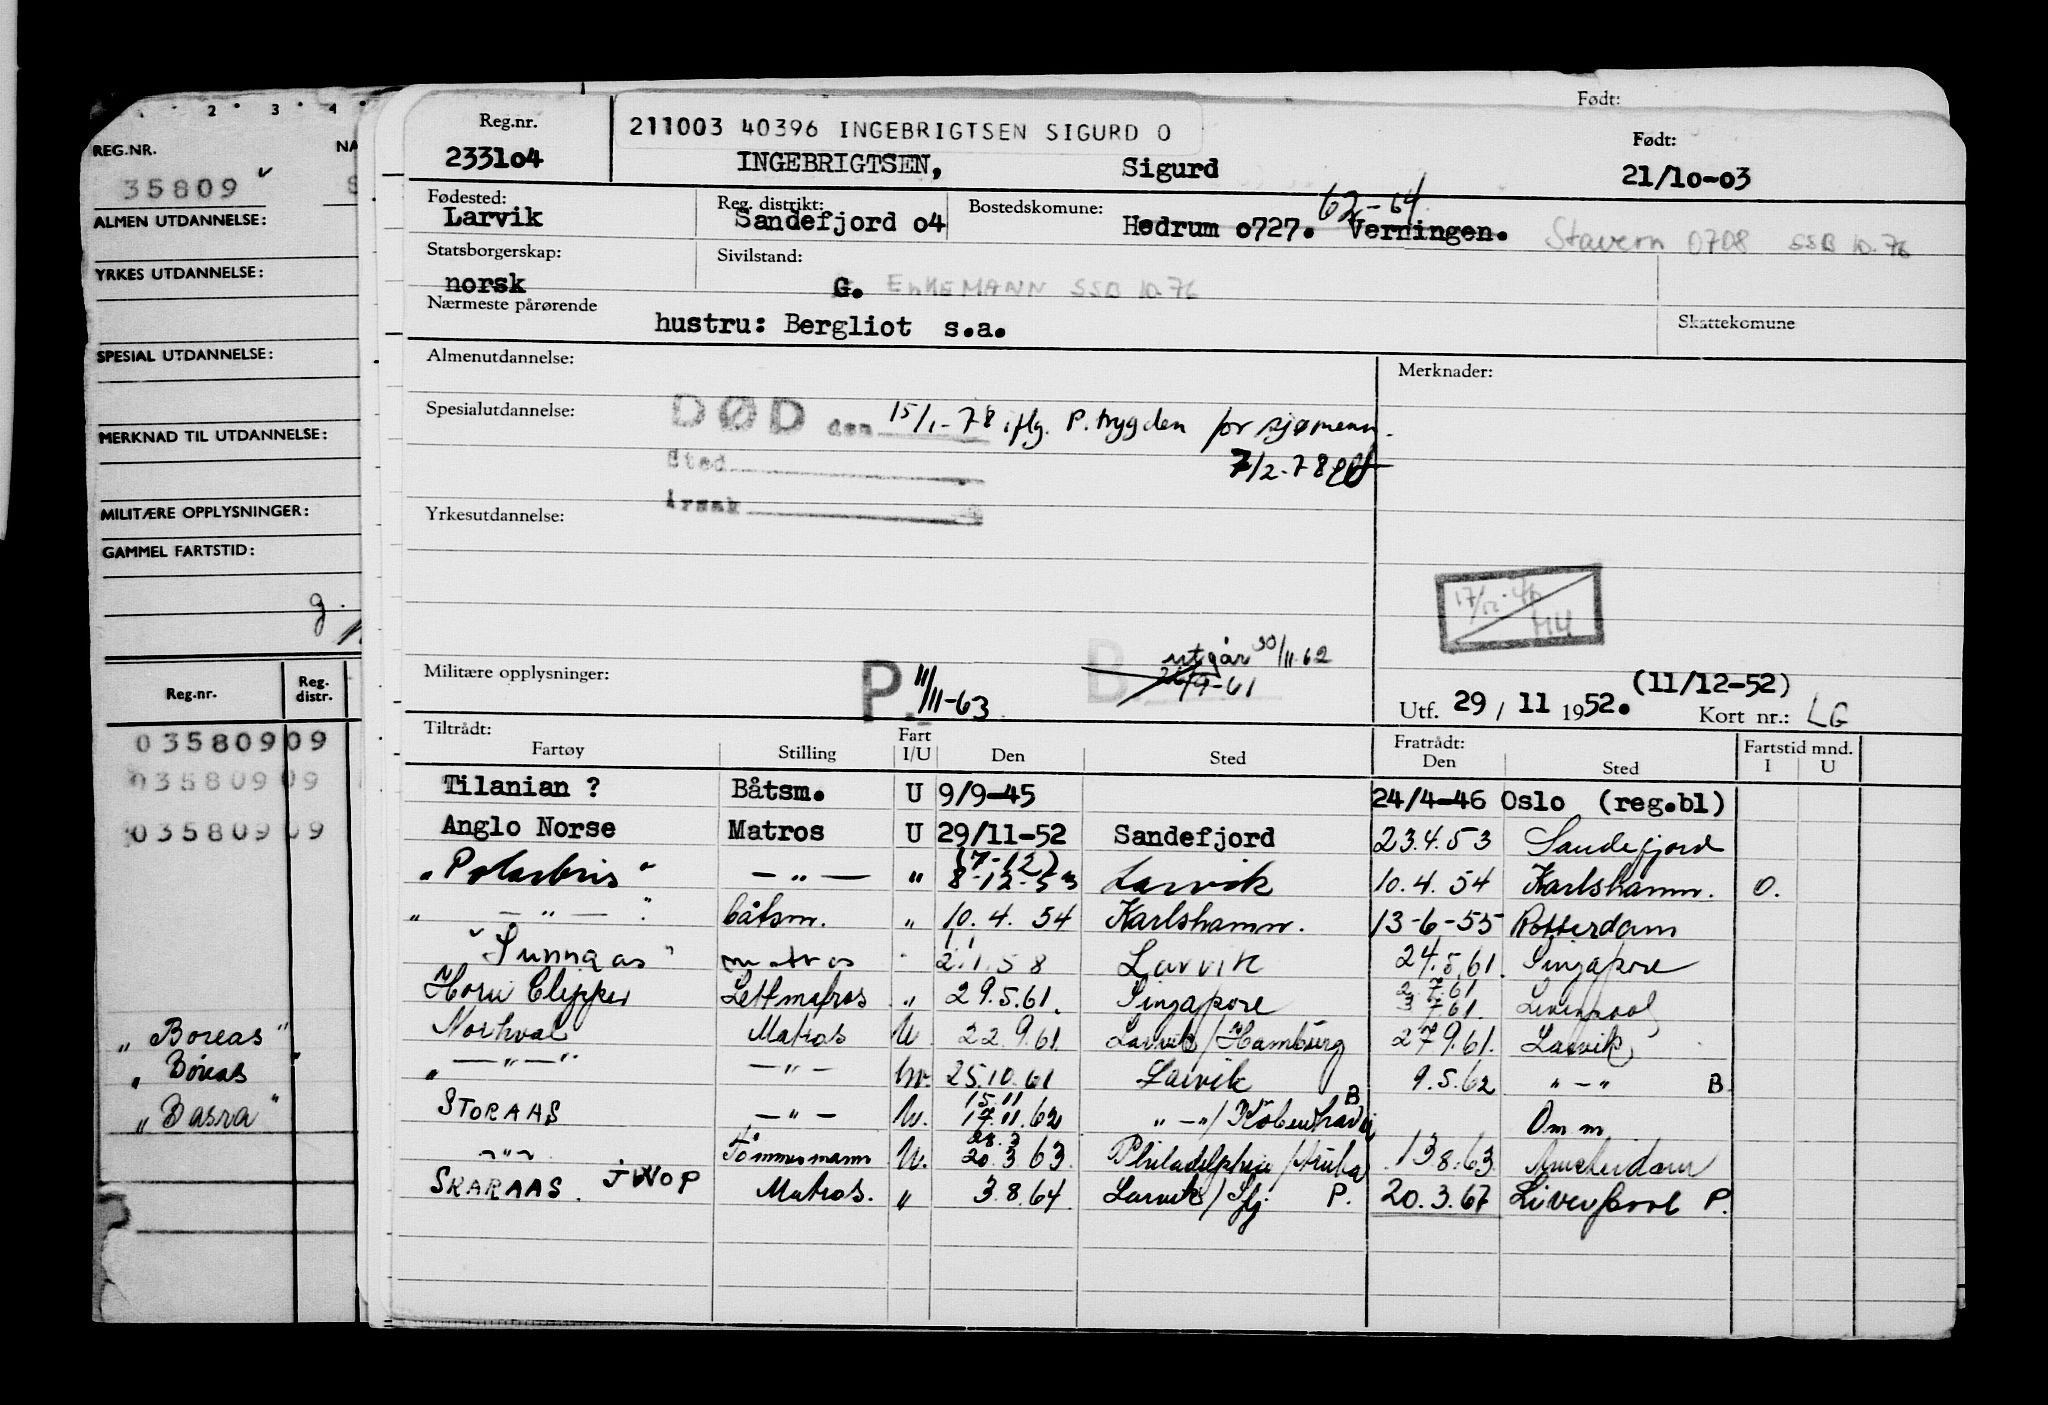 2 3 4
REG.NR. NA
35809 S
ALMEN UTDANNELSE:
YRKES UTDANNELSE:
SPESIAL UTDANNELSE:
MERKNAD TIL UTDANNELSE:
MILITÆRE OPPLYSNINGER:
GAMMEL FARTSTID:
g.
Reg.nr. Reg. distr.
035809 09
035809 09
035809 09
"Boreas"
"Boreas"
"Basra"
Født:
Reg.nr. 211003 40396 INGEBRIGTSEN SIGURD O Født:
233104 INGEBRIGTSEN, Sigurd 21/10-03
Fødested: Reg. distrikt: Bostedskomune: 62-64
Larvik Sandefjord 04 Hedrum 0727. Verningen. Stavern 0708 SSB 10.76
Statsborgerskap: Sivilstand:
norsk G. ENKEMANN SSB 10.76
Nærmeste pårørende
hustru: Bergliot s.a. Skattekomune
Almenutdannelse: Merknader:
Spesialutdannelse: DØD den 15/1-78 iflg. P.trygden for sjømenn.
Sted 7/2-78
Årsak
Yrkesutdannelse:
17/12-76
HU
Militære opplysninger: P 11/11-63 B utgår 30/11.62
26/9-61
(11/12-52)
Utf. 29/11 1952. Kort nr.: LG
Tiltrådt: Fart Fratrådt: Fartstid mnd.
Fartøy Stilling I/U Den Sted Den Sted I U
Tilanian ? Båtsm. U 9/9-45 24/4-46 Oslo (reg.bl)
Anglo Norse Matros U 29/11-52 Sandefjord 23.4.53 Sandefjord
(7-12)
"Polarbris" — " — " 8-12-53 Larvik 10.4.54 Karlshamn. O.
" — " — " båtsm. " 10.4.54 Karlshamn. 13-6-55 Rotterdam
"Sunnaas" matros " 2.1.58 Larvik 24.5.61. Singapore
Horn Clipper Lettmatros " 29.5.61. Singapore 3.7.61. Liverpool
Norhval Matros U 22.9.61 Larvik/Hamburg 27.9.61. Larvik
" — " — " — " — U. 25.10.61 Larvik 9.5.62 " — " B
15.11 B
STORAAS — " — U. 17.11.62 " — "/København Om m
28.3
— " — Tømmermann U. 20.3.63. Philadelphia/Aruba 13.8.63 Amsterdam
SKARAAS. JWOP Matros. " 3.8.64. Larvik/Sfj P. 20.3.67 Liverpool P.